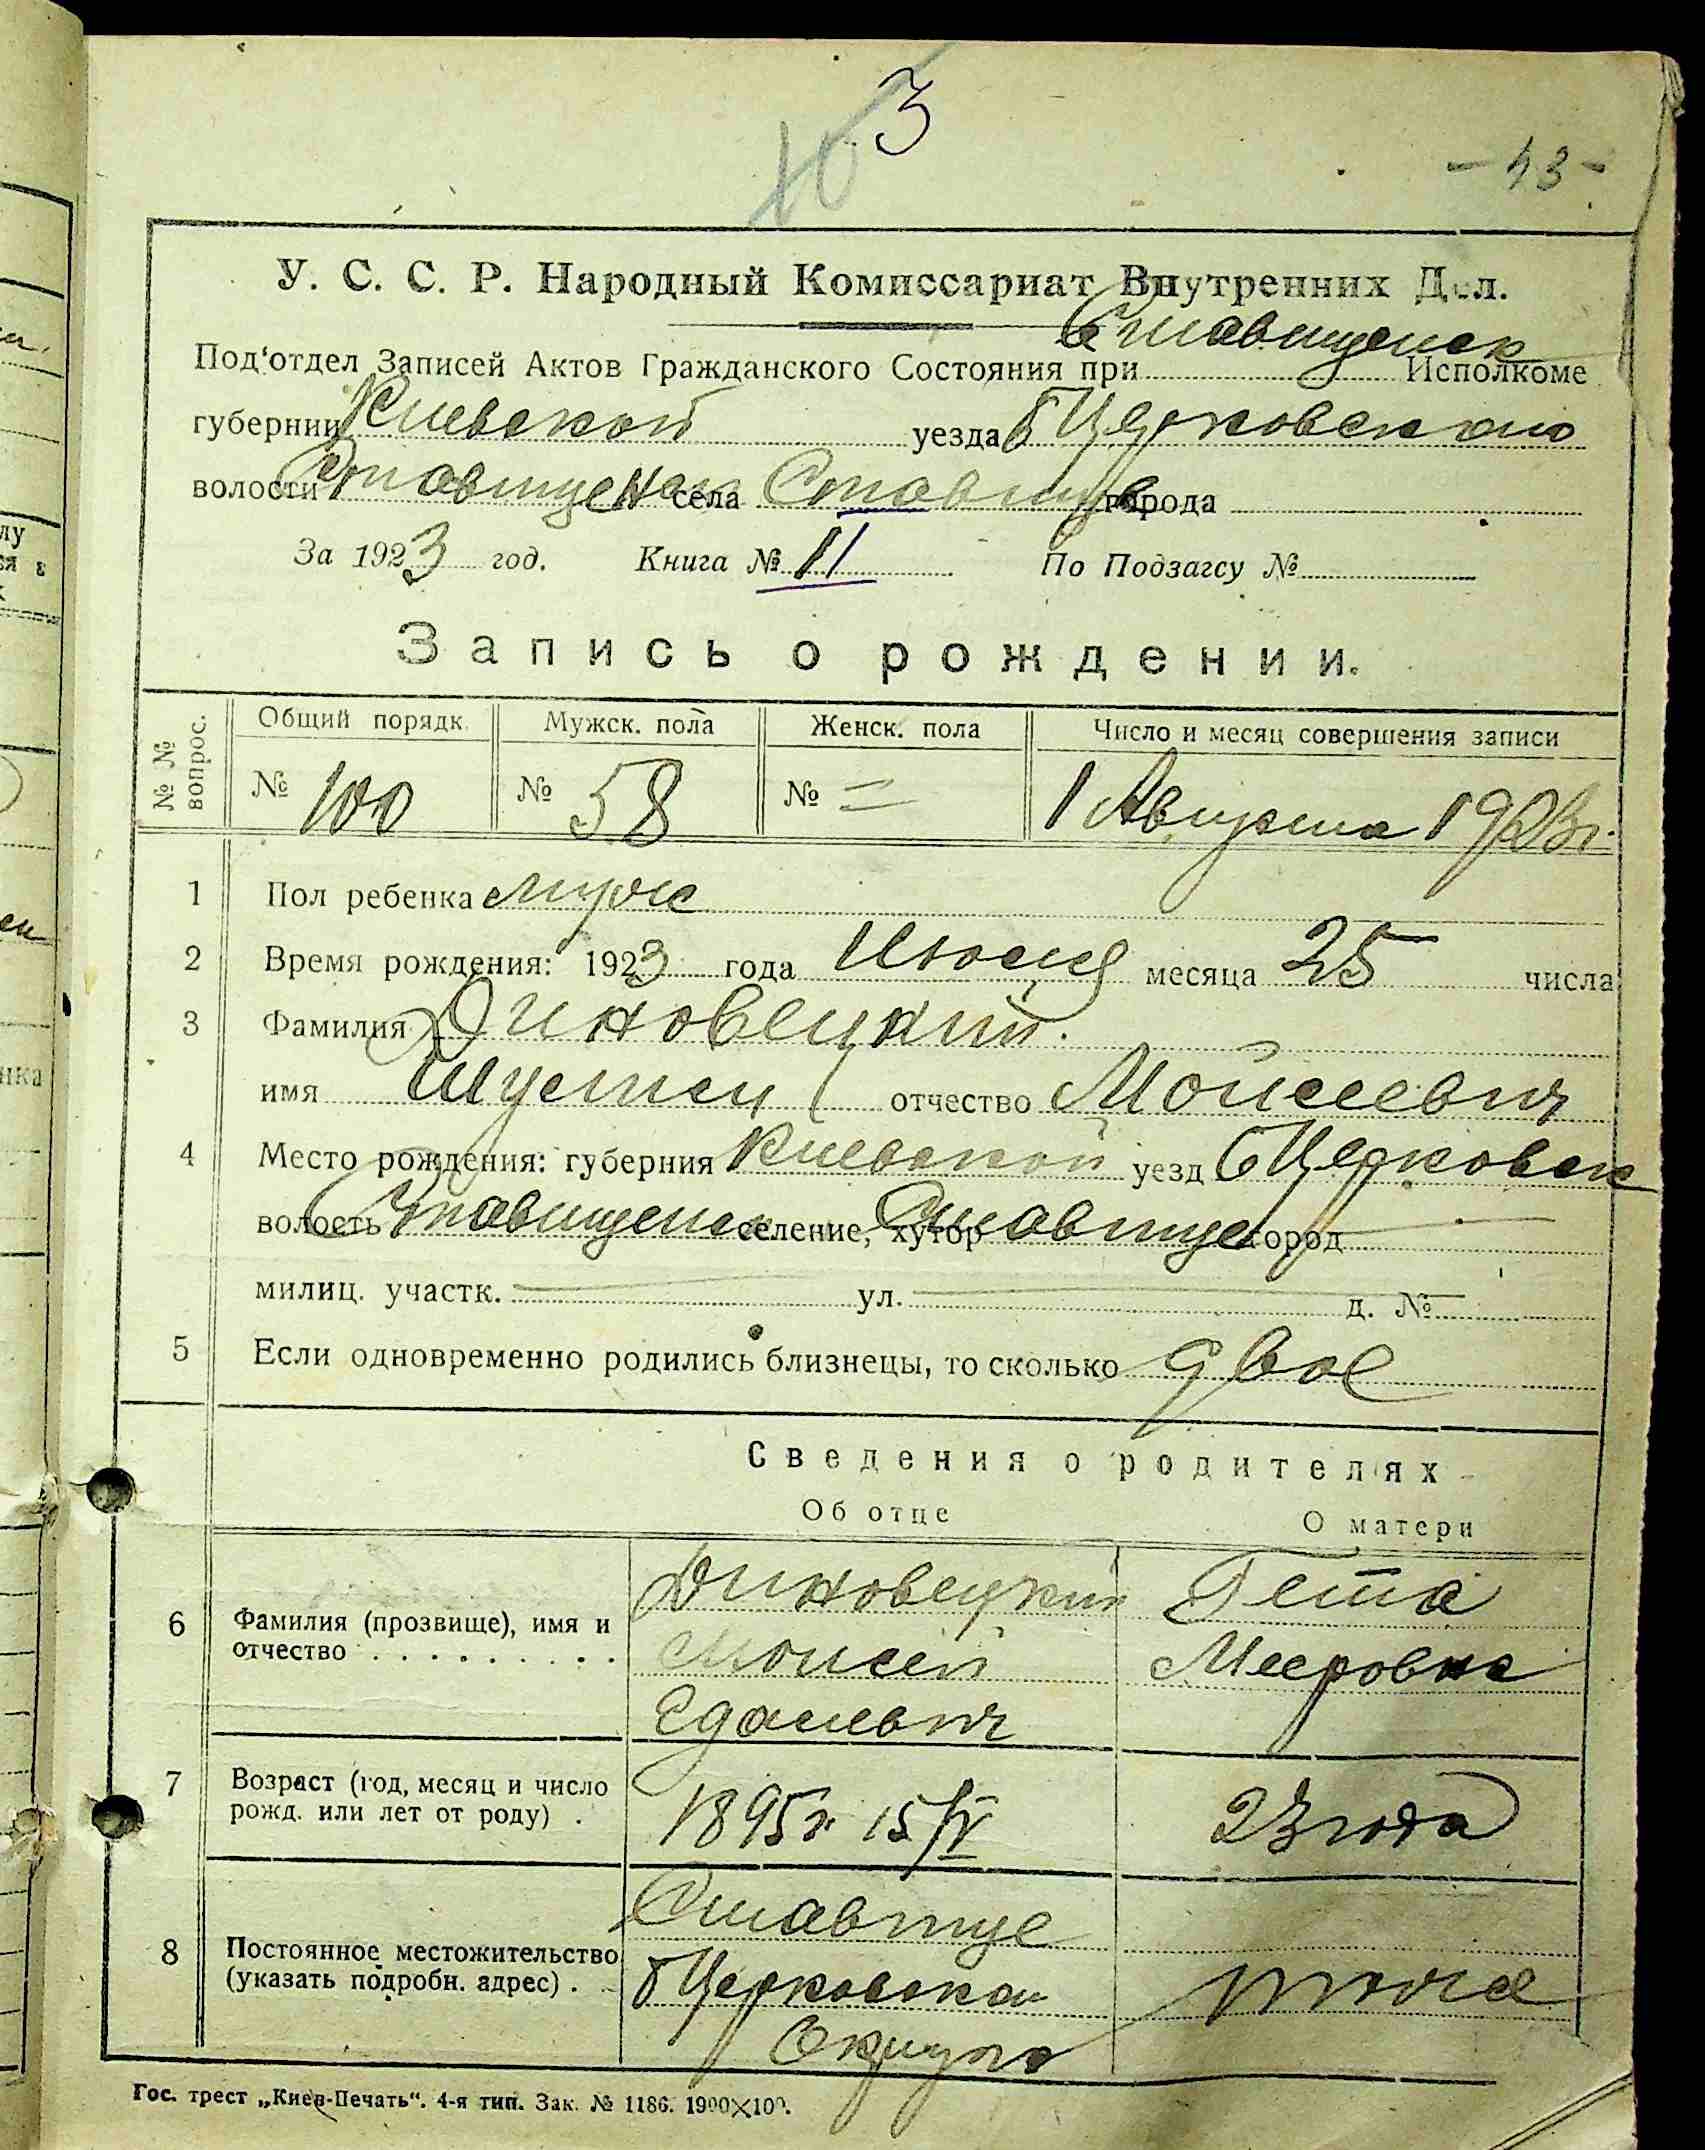 3
10
- 43 -
У. С. С. Р. Народный Комиссариат Внутренних Дел.
Под'отдел Записей Актов Гражданского Состояния при Ставищенск Исполкоме
губернии Киевской уезда Б Церковского
волости Ставищенск села Ставище города
За 1923 год. Книга № II По Подзагсу №
Запись о рождении.
№ № вопрос. Общий порядк. Мужск. пола Женск. пола Число и месяц совершения записи
№ 100 № 58 № = 1 Августа 1923 г.
1 Пол ребенка муж
2 Время рождения: 1923 года Июля месяца 25 числа
3 Фамилия Диновецкий.
имя отчество Мойсеевич
4 Место рождения: губерния Киевской уезд Б Церковск
волость Ставищенск селение, хутор Ставище город
милиц. участк. — ул. — д. № —
5 Если одновременно родились близнецы, то сколько двое
Сведения о родителях
Об отце О матери
6 Фамилия (прозвище), имя и отчество . . . . . . . . . .
Диновецкий Гета
Моисей Мееровна
7 Возраст (год, месяц и число рожд. или лет от роду) .
1895 г. 15/IV 23 года
8 Постоянное местожительство (указать подробн. адрес) . .
Ставище
Б Церковской тоже
Округа
Гос. трест „Киев-Печать“. 4-я тип. Зак. № 1186. 1900×100.